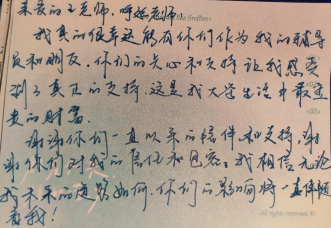 亲爱的王老师,呼格老师:
fireflies
我真的很幸运能有你们作为我的辅导
员和朋友,你们的关心和支持让我感受
到了真正的支持,这是我大学生活中最宝
贵的财富。
谢谢你们一直以来的陪伴和支持,谢
谢你们对我的信任和包容,我相信无论
我未来的道路如何,你们的影响将一直伴随
着我!
All rights reserved. ©